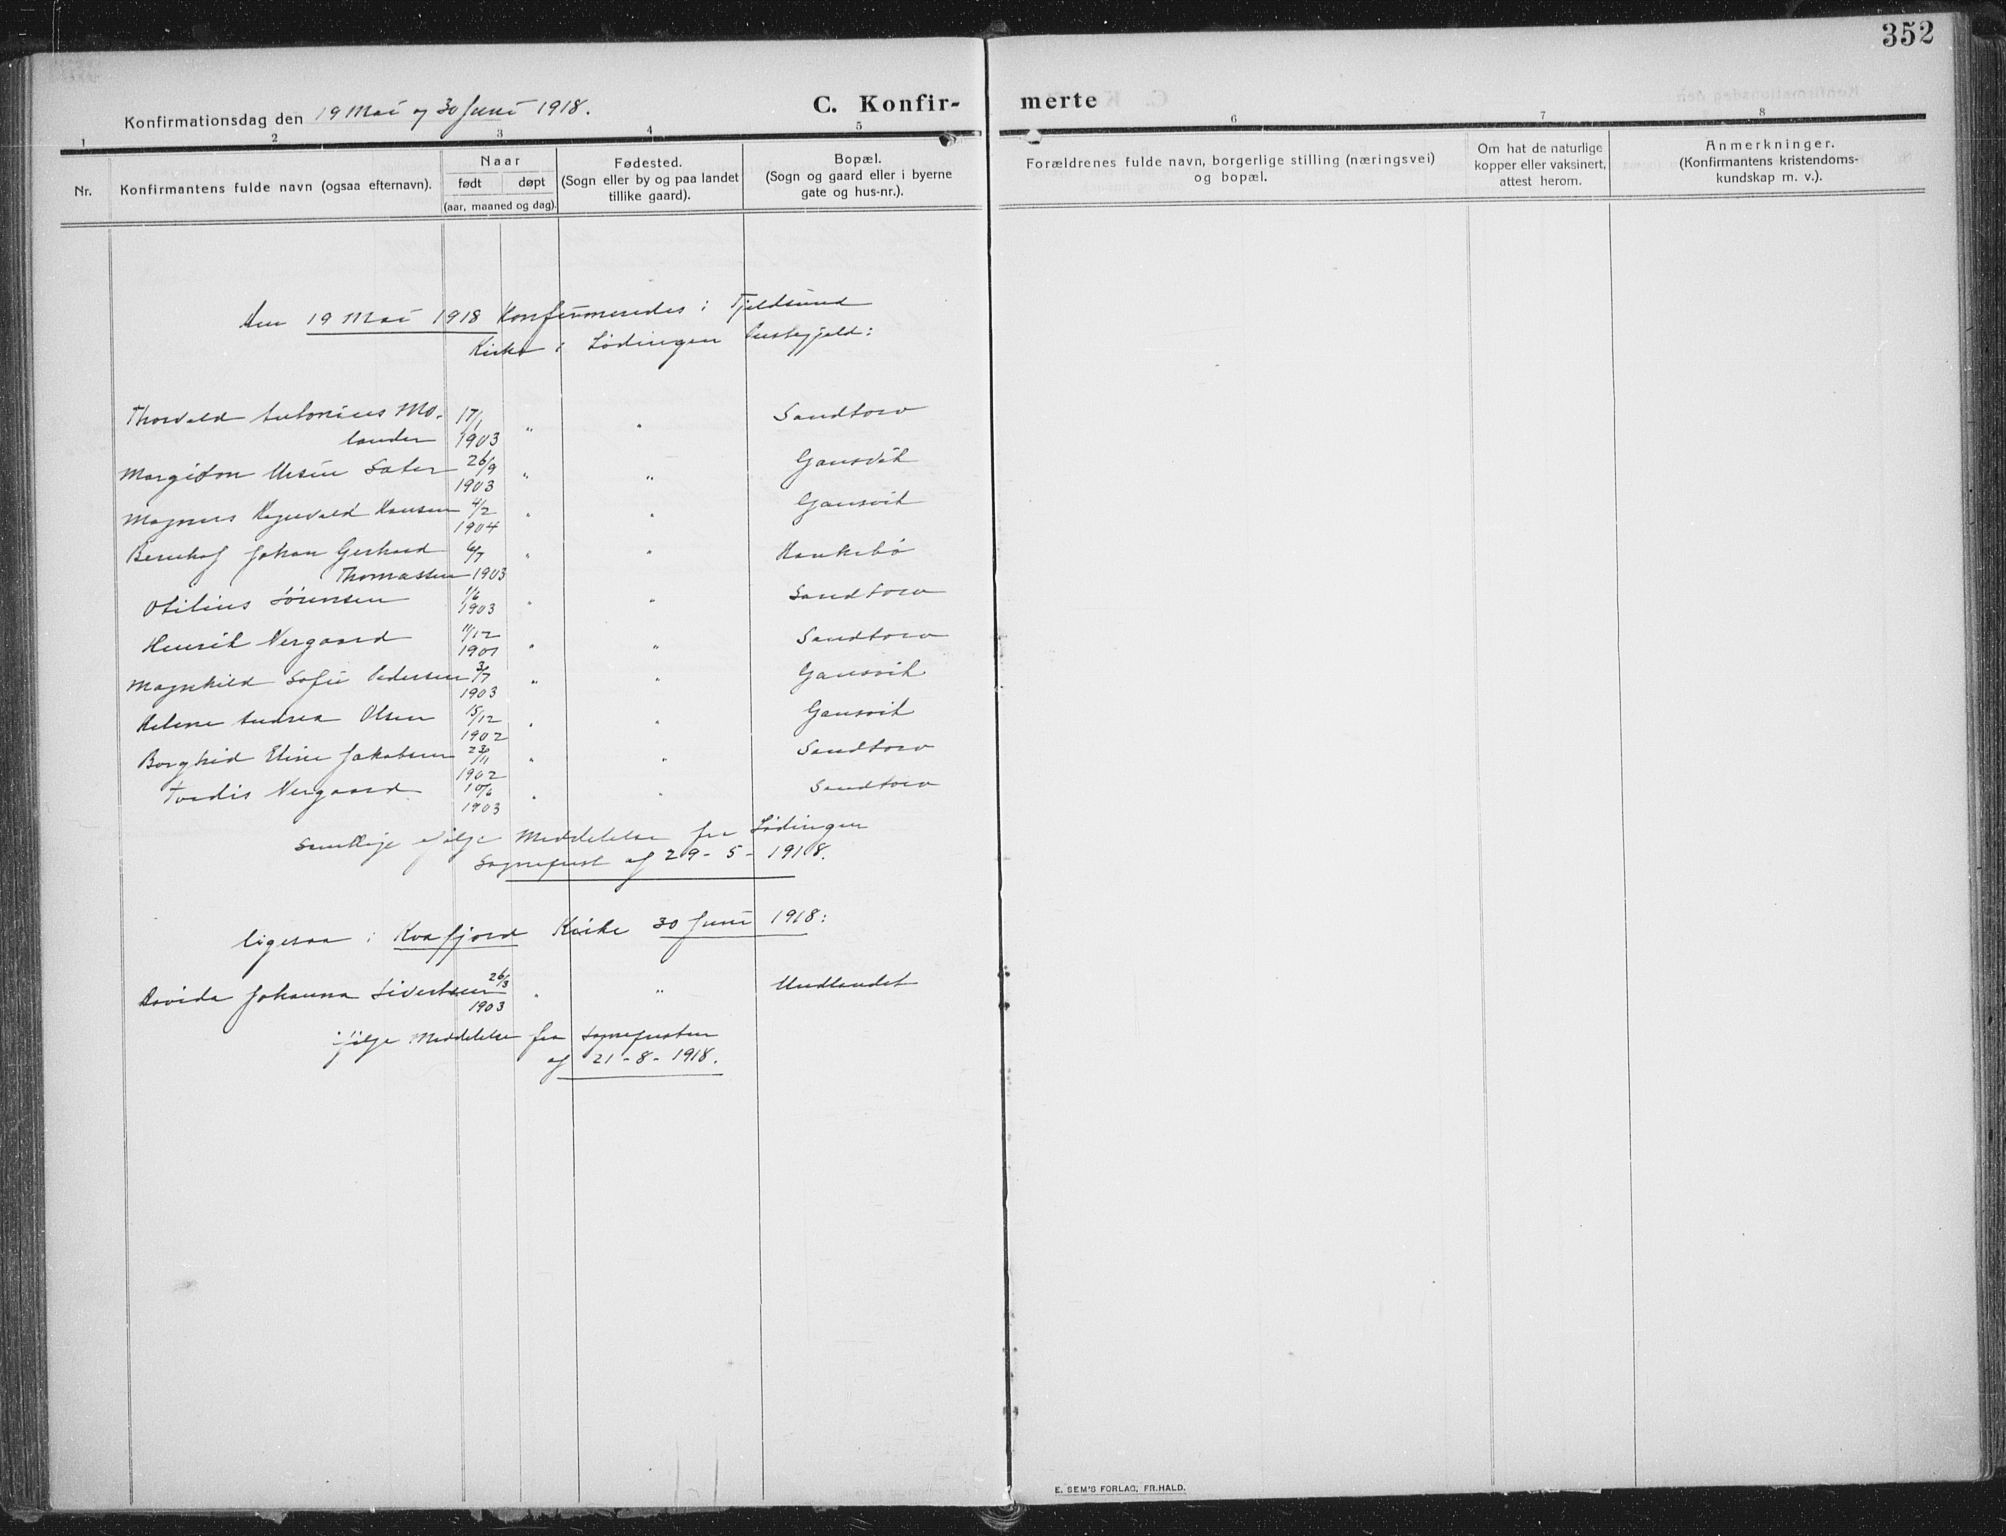 352
Konfirmationsdag den 19 Mai og 30 Juni 1918.
C. Konfir- merte
1 2 3 4 5 6 7 8
Nr.
Konfirmantens fulde navn (ogsaa efternavn).
Naar
født døpt
(aar, maaned og dag).
Fødested.
(Sogn eller by og paa landet
tillike gaard).
Bopæl.
(Sogn og gaard eller i byerne
gate og hus-nr.).
Forældrenes fulde navn, borgerlige stilling (næringsvei)
og bopæl.
Om hat de naturlige
kopper eller vaksinert,
attest herom.
Anmerkninger.
(Konfirmantens kristendoms-
kundskap m. v.).
Den 19 Mai 1918 Konfirmeredes i Tjeldsund
Kirke i Lødingen Prestegjeld:
Thorvald Antonius Mo- 17/1 Sandtorv
lander 1903 " "
Margidon Ursin Sater 26/9 Gansvik
1903 " "
Magnus Ragnvald Hansen 4/2 Gansvik
1904 " "
Bernhof Johan Gerhard 6/7 " " Haukebø
Thomassen 1903
Otilius Sørensen 1/6 Sandtorv
1903 " "
Henrik Nergaard 11/12 Sandtorv
1901 " "
Magnhild Sofie Pedersen 3/7 Gansvik
1903 " "
Helene Andrea Olsen 15/12 Gansvik
1902 " "
Borghild Eline Jakobsen 23/11 Sandtorv
1902 " "
Tordis Nergaard 10/6 Sandtorv
1903 " "
Samtlige ifølge Meddelelse fra Lødingen
Sogneprest af 29-5-1918.
ligesaa i Kvæfjord Kirke 30 Juni 1918:
Davida Johanna Sivertsen 26/3 " " Undlandet
1903
ifølge Meddelelse fra Sognepresten
af 21-8-1918.
E. SEM'S FORLAG, FR.HALD.